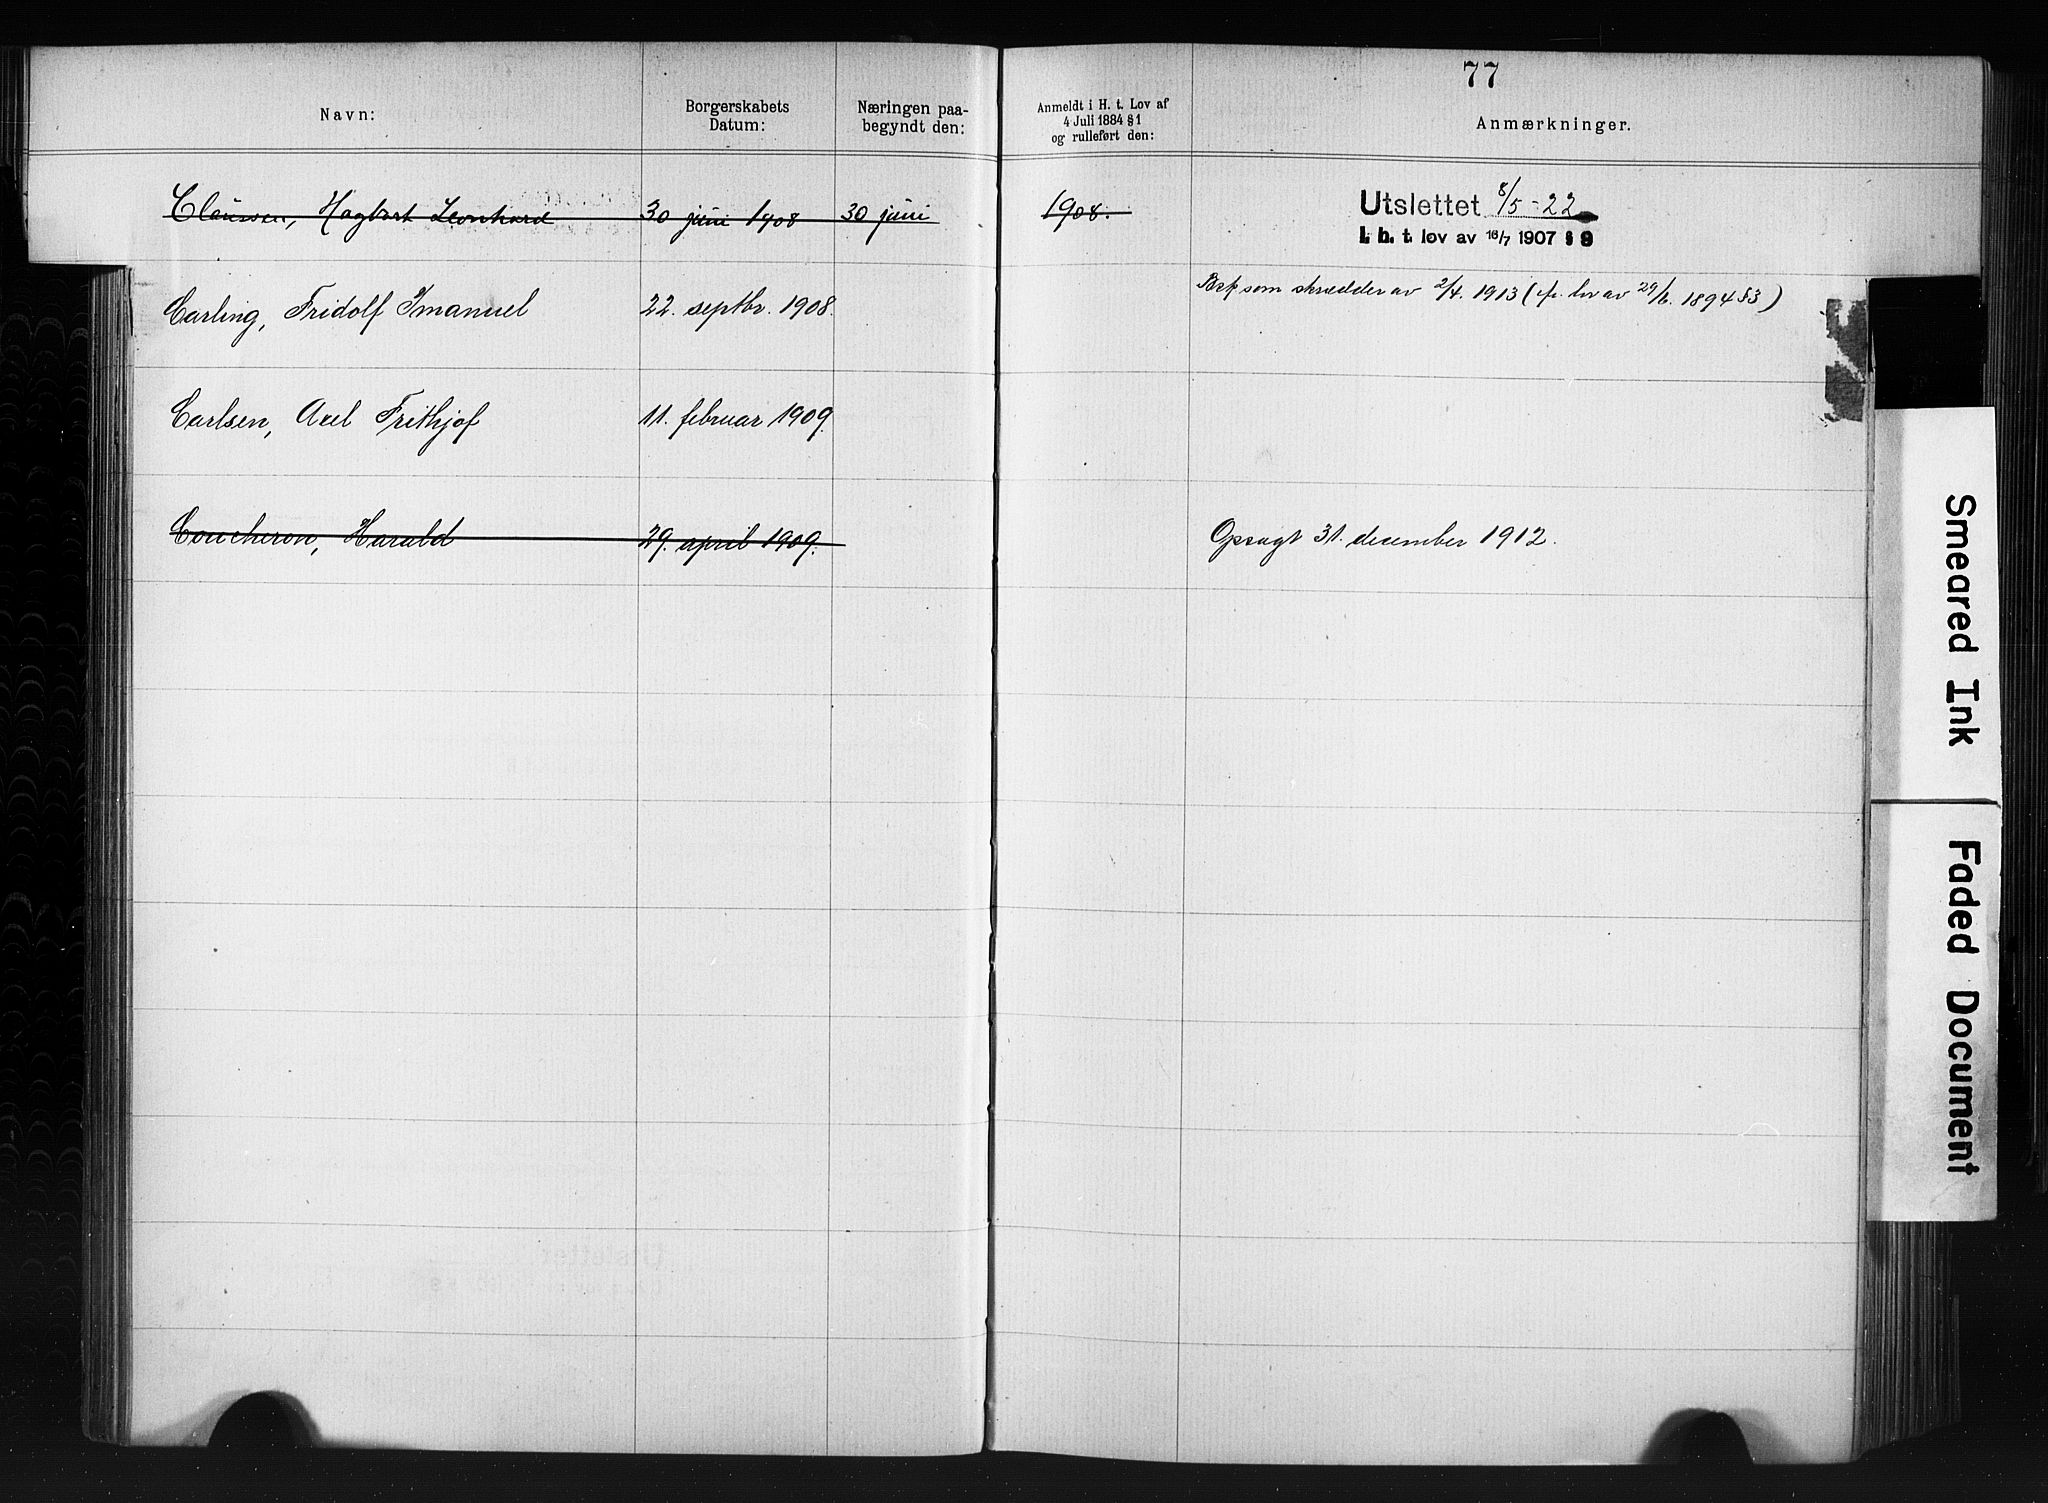 77
Navn:
Borgerskabets
Datum:
Næringen paa-
begyndt den:
Anmeldt i H. t. Lov af
4 Juli 1884 § 1
og rulleført den:
Anmærkninger.
Claussen, Hagbart Leonhard 30 juni 1908 30 juni 1908. Utslettet 8/5-22
I. h. t. lov av 16/7 1907 § 9
Carling, Fridolf Imanuel 22. septbr. 1908. som skrædder av 2/4. 1913 (cfr. lov av 29/6. 1894 § 3)
Carlsen, Axel Frithjof 11. februar 1909.
Coucheron, Harald 29. april 1909. Opsagt 31. december 1912.
Smeared Ink
Faded Document